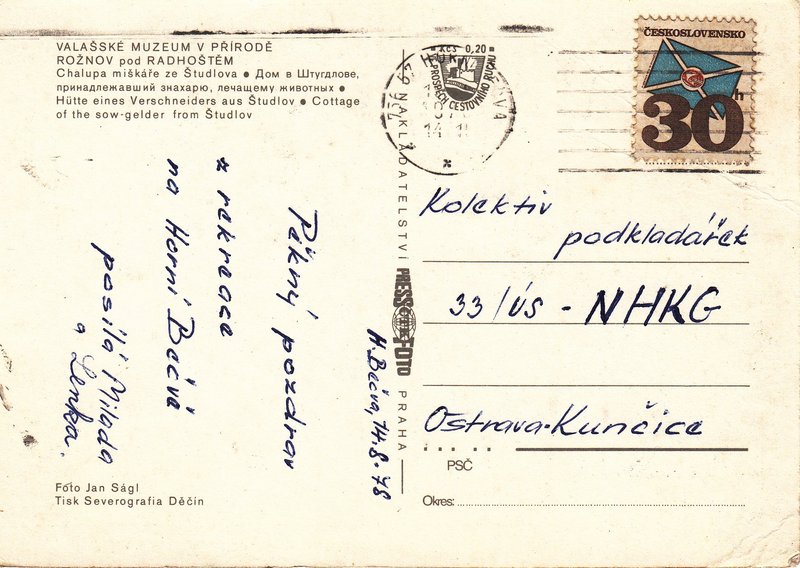 VALAŠSKÉ MUZEUM V PŘÍRODĚ
ROŽNOV pod RADHOŠTĚM
Chalupa miškáře ze Študlova • Дом в Штудлове,
принадлежавший знахарю, лечащему животных •
Hütte eines Verschneiders aus Študlov • Cottage
of the sow-gelder from Študlov
H. Bečva, 14.8.78
Pěkný pozdrav
z rekreace
na Horní Bečvě
posílá Milada
a Lenka.
Foto Jan Ságl
Tisk Severografia Děčín
NAKLADATELSTVÍ
PRESSFOTO
PRAHA
Kčs 0,20
PROSPĚCH CESTOVNÍHO RUCHU
756 62
ČESKOSLOVENSKO
30h
Kolektiv
podkladářek
33/ÚS - NHKG
Ostrava-Kunčice
PSČ
Okres: